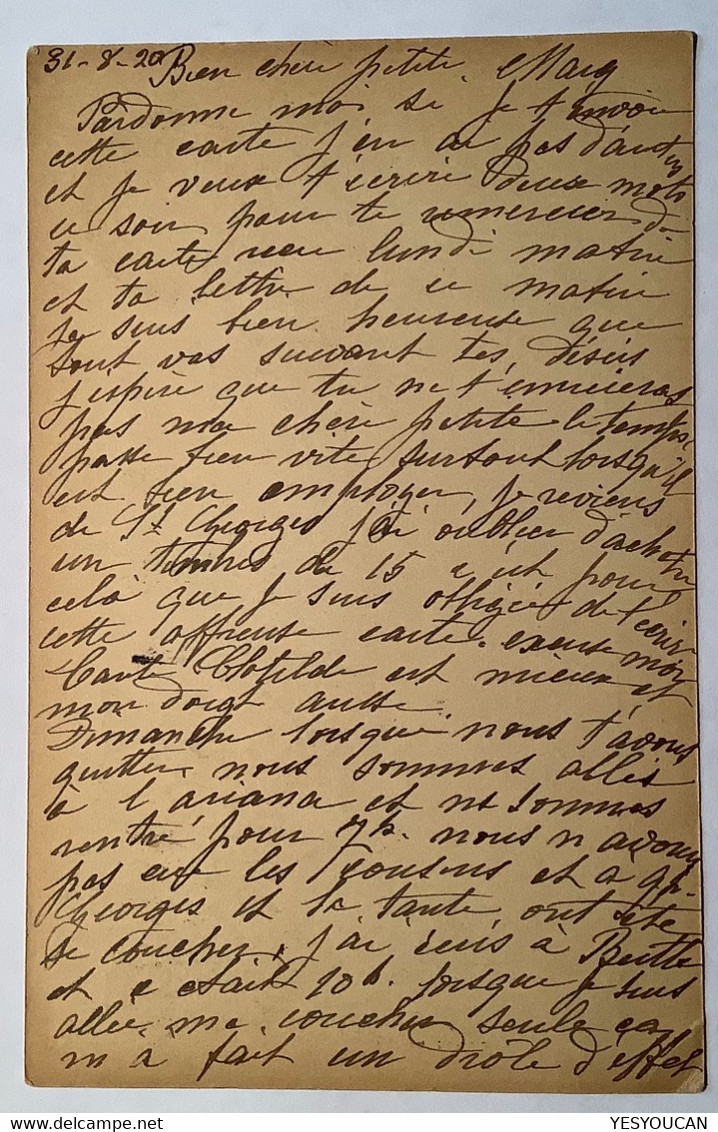 31-8-20 Bien chère petite Marg
Pardonne moi si je t'envoie
cette carte j'en ai pas d'autres
et je veux t'écrire deux mots
ce soir pour te remercier de
ta carte reçu lundi matin
et ta lettre de ce matin
je suis bien heureuse que
tout vas suivant tes désirs
j'espère que tu ne t'ennuieras
pas ma chère petite le temps
passe bien vite surtout lorsqu'il
est bien employer, je reviens
de St Georges j'ai oublier d'acheter
un timbre de 15 c'est pour
celà que je suis obligée de t'écrire
cette affreuse carte. excuse moi
Tante Clotilde est mieux et
mon doigt aussi
Dimanche lorsque nous t'avons
quitter nous sommes allés
à l'ariana et ns sommes
rentré pour 7h. nous n'avons
pas eu les cousins et a 9h
Georges et la tante ont été
se coucher, j'ai écris à Berthe
et c'était 10h. lorsque je suis
allée me coucher seule ça
m'a fait un drôle d'effet
YESYOUCAN